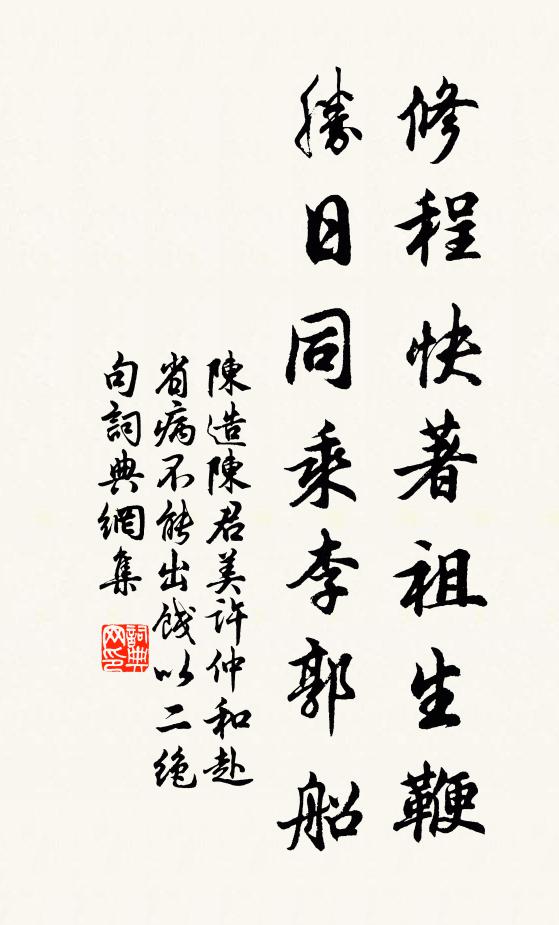 修程快著祖生鞭
勝日同乘李郭船
陳造陳君美許仲和赴
省病不能出餞以二绝
句詞典網集
詞典
网印